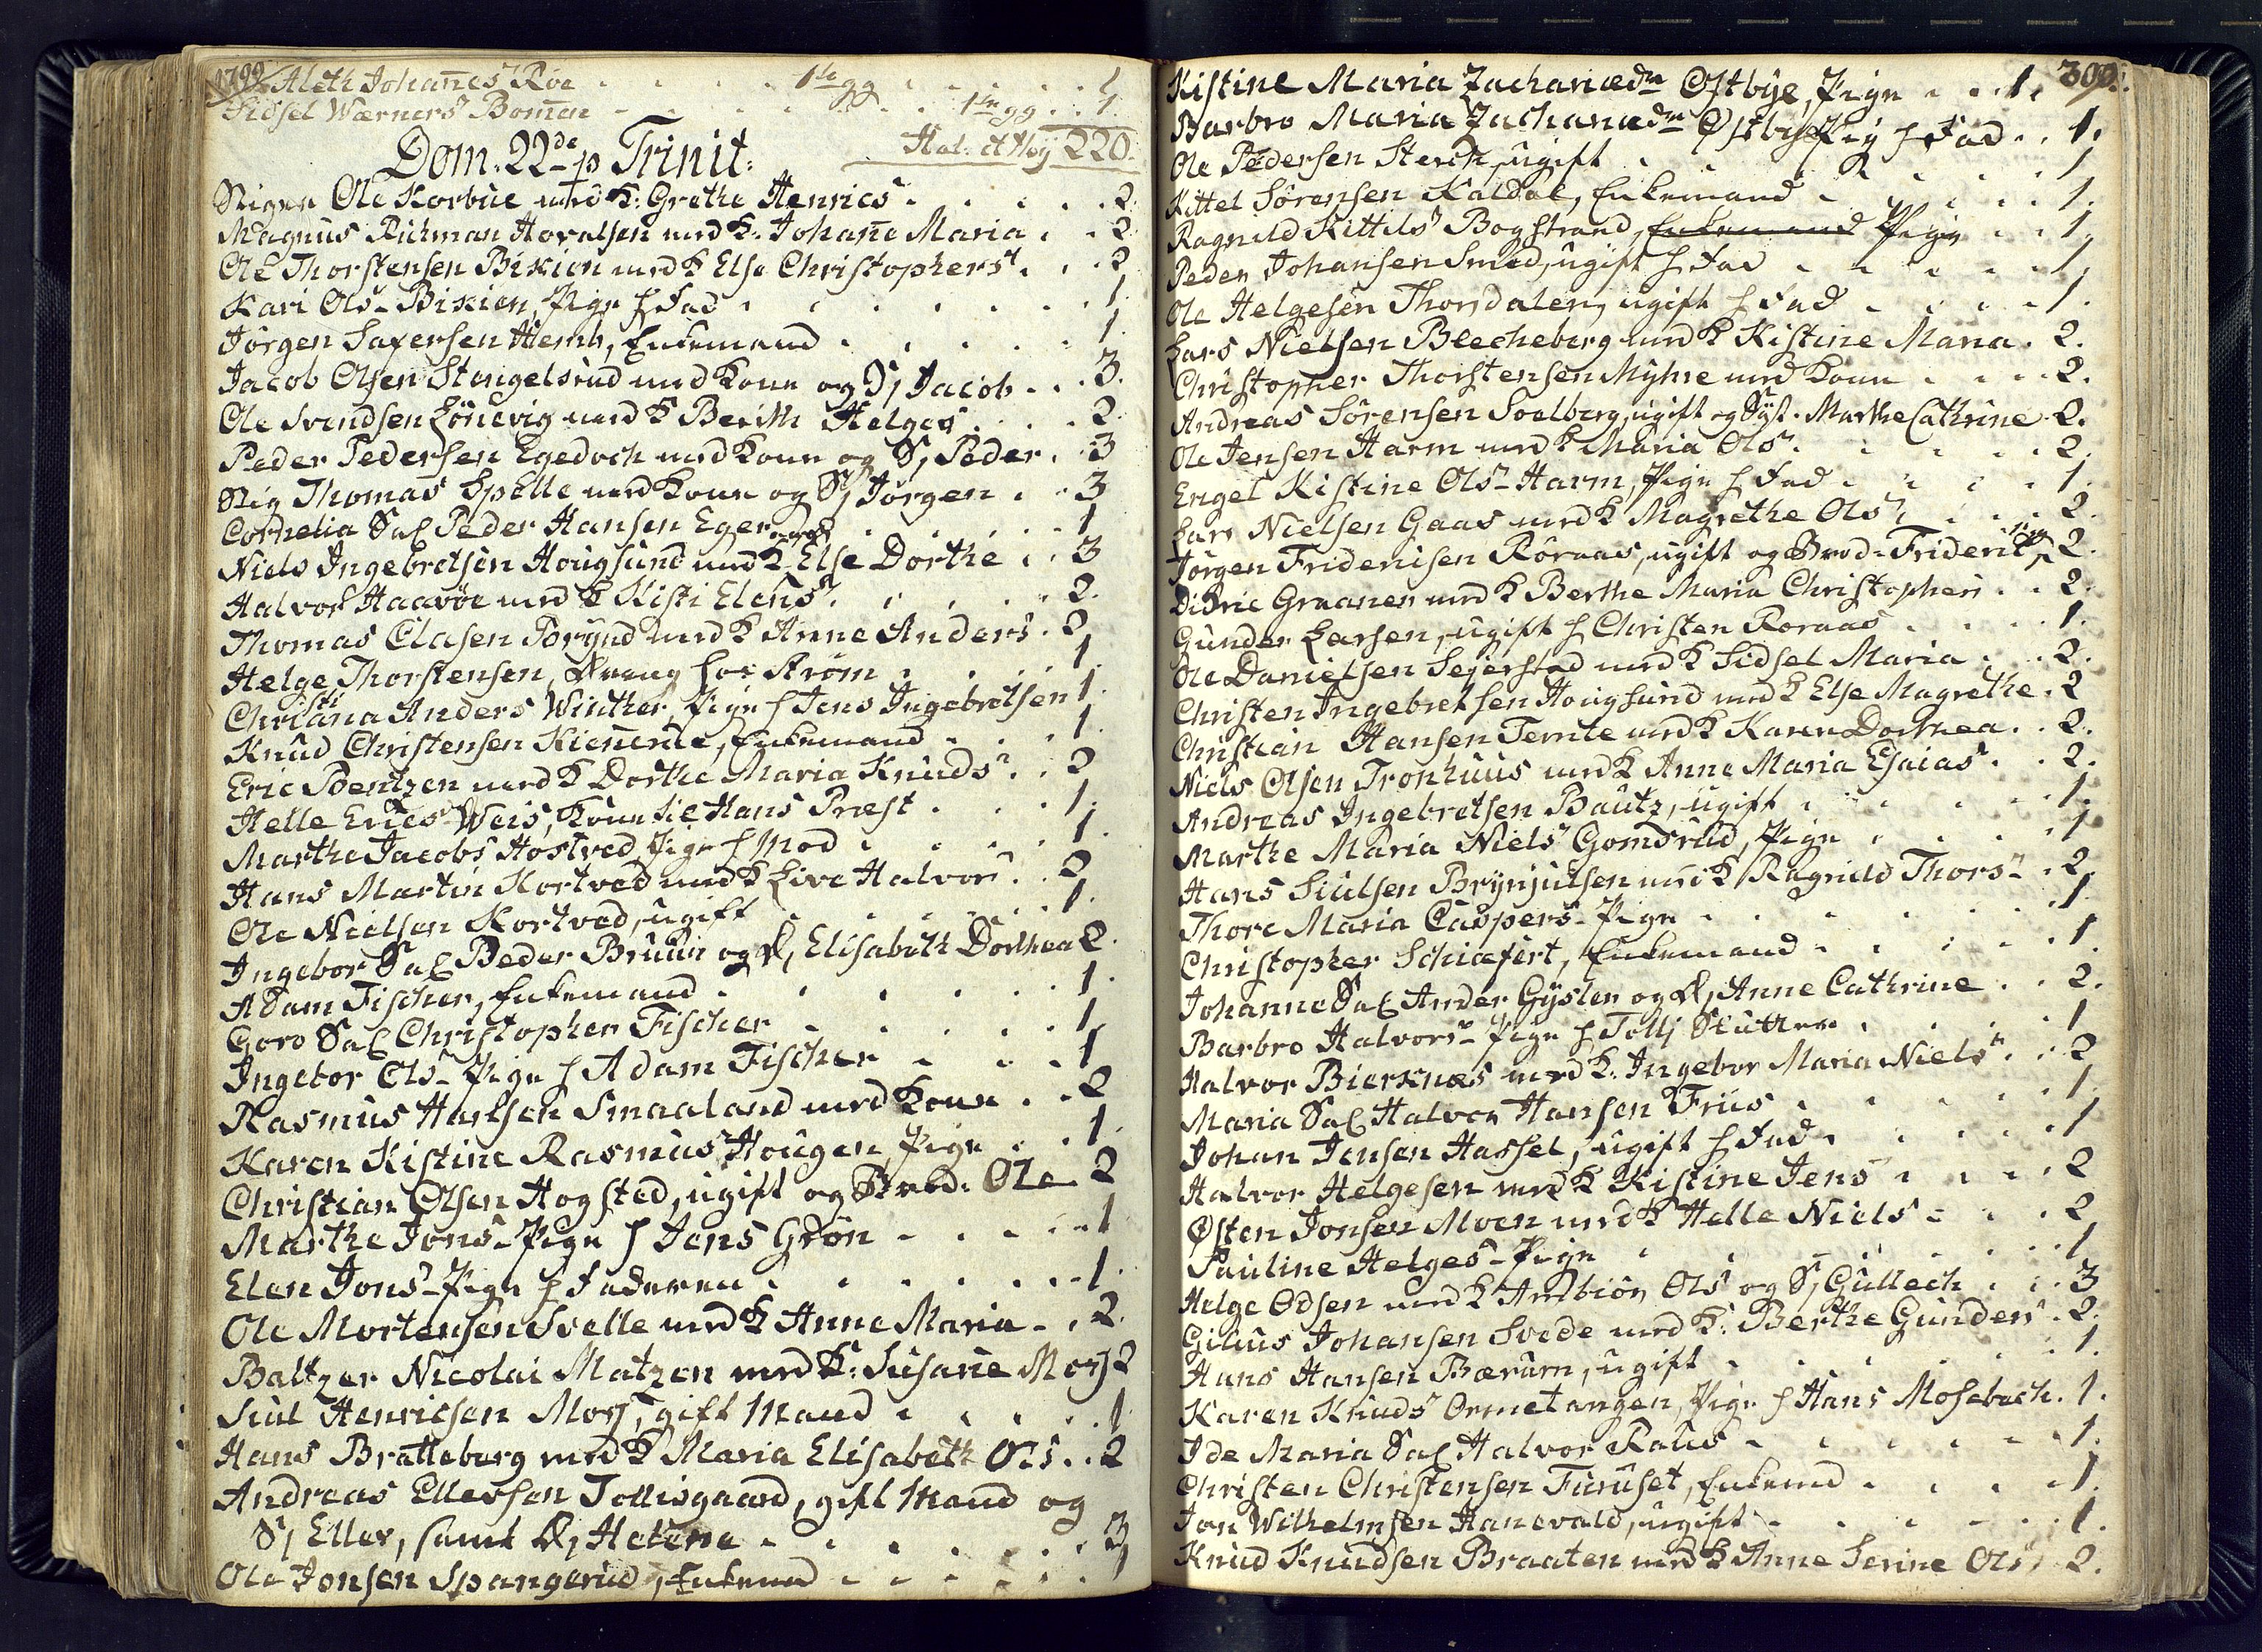 1799 Aleth Johanes Røe 1ste gg 1
Sidsel Wærners Bomen 1ste gg 1
Hal: et Høy 220.
Dom: 22de p Trinit:
Stiger Ole Korbüe med K: Grethe Henrics 2
Magnus Richman Hovalsen med K: Johane Maria 2
Ole Thorstensen Bixien med K Else Christophers 2
Kari Ols Bixien, Pige h Fad 1
Jørgen Saxersen Hemb, Enkemand 1.
Jacob Olsen Stengelsrud med Kone og S, Jacob 3.
Ole Svendsen Lönevig med K Berith Helges 2
Peder Pedersen Egedoch med Kone og S, Peder 3
Stig Thomas Spelle med Kone og S, Jörgen 3
Cornelia Sal Peder Hansen Eger 1
Niels Ingebretsen Hougsund med K Else Dorthe 3
Halvor Haavöe med K Kisti Elens 2.
Thomas Clasen Torgud med K Anne Anders 2
Helge Thorstensen, Dreng hos Ström 1
Christiana Anders Winther, Pige h Jens Ingebretsen 1.
Knud Christensen Kienerüe, Enkemand 1.
Eric Bentzen med K Dorthe Maria Knuds 2
Helle Erics Weis, Kone til Hans Præst 1.
Marthe Jacobs Hostved, Pige h Mod 1.
Hans Martin Kortved med K Live Halvors 2
Ole Nielsen Kortved, ugift 1.
Ingebor Sal Peder Bruun og D, Elisabeth Dorthea 2.
Adam Fischer, Enkemand 1.
Goro Sal Christopher Fischer 1
Ingebor Ols Pige h Adam Fischer 1
Rasmus Harlsen Smaaland med Kone 2
Karen Kistine Rasmus Hougen, Pige 1.
Christian Olsen Hogsted, ugift og Brod: Ole 2
Marthe Jons Pige h Jens Grön 1
Elen Jons Pige h Faderen 1.
Ole Mortensen Svelle med K Anne Maria 2.
Baltzer Nicolai Matzen med K: Susane Morj 2
Siul Henricsen Morj, gift Mand 1
Hans Bratteberg med K Maria Elisabeth Ols 2
Andreas Ellevsen Tollisgaard, gift Mand og
S, Ellev, samt D, Helene 3
Ole Jonsen Spangerud, Enkemd 1
309.
Kistine Maria Zachariædr Østbye, Pige 1.
Barbro Maria Zachariædr Østbye Pig h Fad 1.
Ole Pedersen Sterch, ugift 1
Kittel Sörensen Kaldal, Enkemand 1.
Ragnild Kittils Bogstrand, Enkemand Pige 1.
Peder Johansen Smed, ugift h Fad 1.
Ole Helgesen Thorsdalen, ugift h Fad 1.
Lars Nielsen Blecheberg med K Kistine Maria 2.
Christopher Thorstensen Myhre med Kone 2.
Andreas Sörensen Soelberg, ugift og Syst. Marthe Cathrine 2.
Ole Jensen Harm med K Maria Ols 2.
Engel Kistine Ols Harm, Pige h Fad 1.
Lars Nielsen Gaas med K Magrethe Ols 2.
Jörgen Fridericsen Röraas, ugift og Brod: Frideric 2.
Didric Graaner med K Berthe Maria Christophers 2.
Gunder Larsen, ugift h Christen Roraas 1.
Ole Danielsen Sejersted med K Sidsel Maria 2.
Christen Ingebretsen Hougsund med K Else Magrethe 2
Christian Hansen Temte med K Karen Dorthea 2.
Niels Olsen Tronhuus med K Anne Maria Esaias 2.
Andreas Ingebretsen Bautz, ugift 1.
Marthe Maria Niels Gomsrud, Pige 1
Hans Siulsen Brynjulsen med K Ragnild Thors 2
Thore Maria Caspers Pige 1
Christopher Schiefert, Enkemand 1.
Johanne Sal Ander Gysler og D, Anne Cathrine 2.
Barbro Halvors Pige h Tollj Stutter 1
Halvor Bierknæs med K: Ingebor Maria Niels 2
Maria Sal Halvor Hansen Friis 1
Johan Jensen Hassel, ugift h Fad 1
Halvor Helgesen med K Kistine Jens 2
Østen Jonsen Moen med K Helle Niels 2
Pauline Helges Pige 1
Helge Odsen med K Anbiör Ols og S, Gullech 3
Gilius Johansen Svede med K: Berthe Gunders 2.
Hans Hansen Bærum, ugift 1.
Karen Knuds Ormetangen, Pige h Hans Mosebach 1.
Ide Maria Sal Halvor Raüs 1.
Christen Christensen Furuset, Enkemd 1.
Jon Wilhelmsen Hanevald, ugift 1.
Knud Knudsen Braaten med K Anne Serine Ols 2.